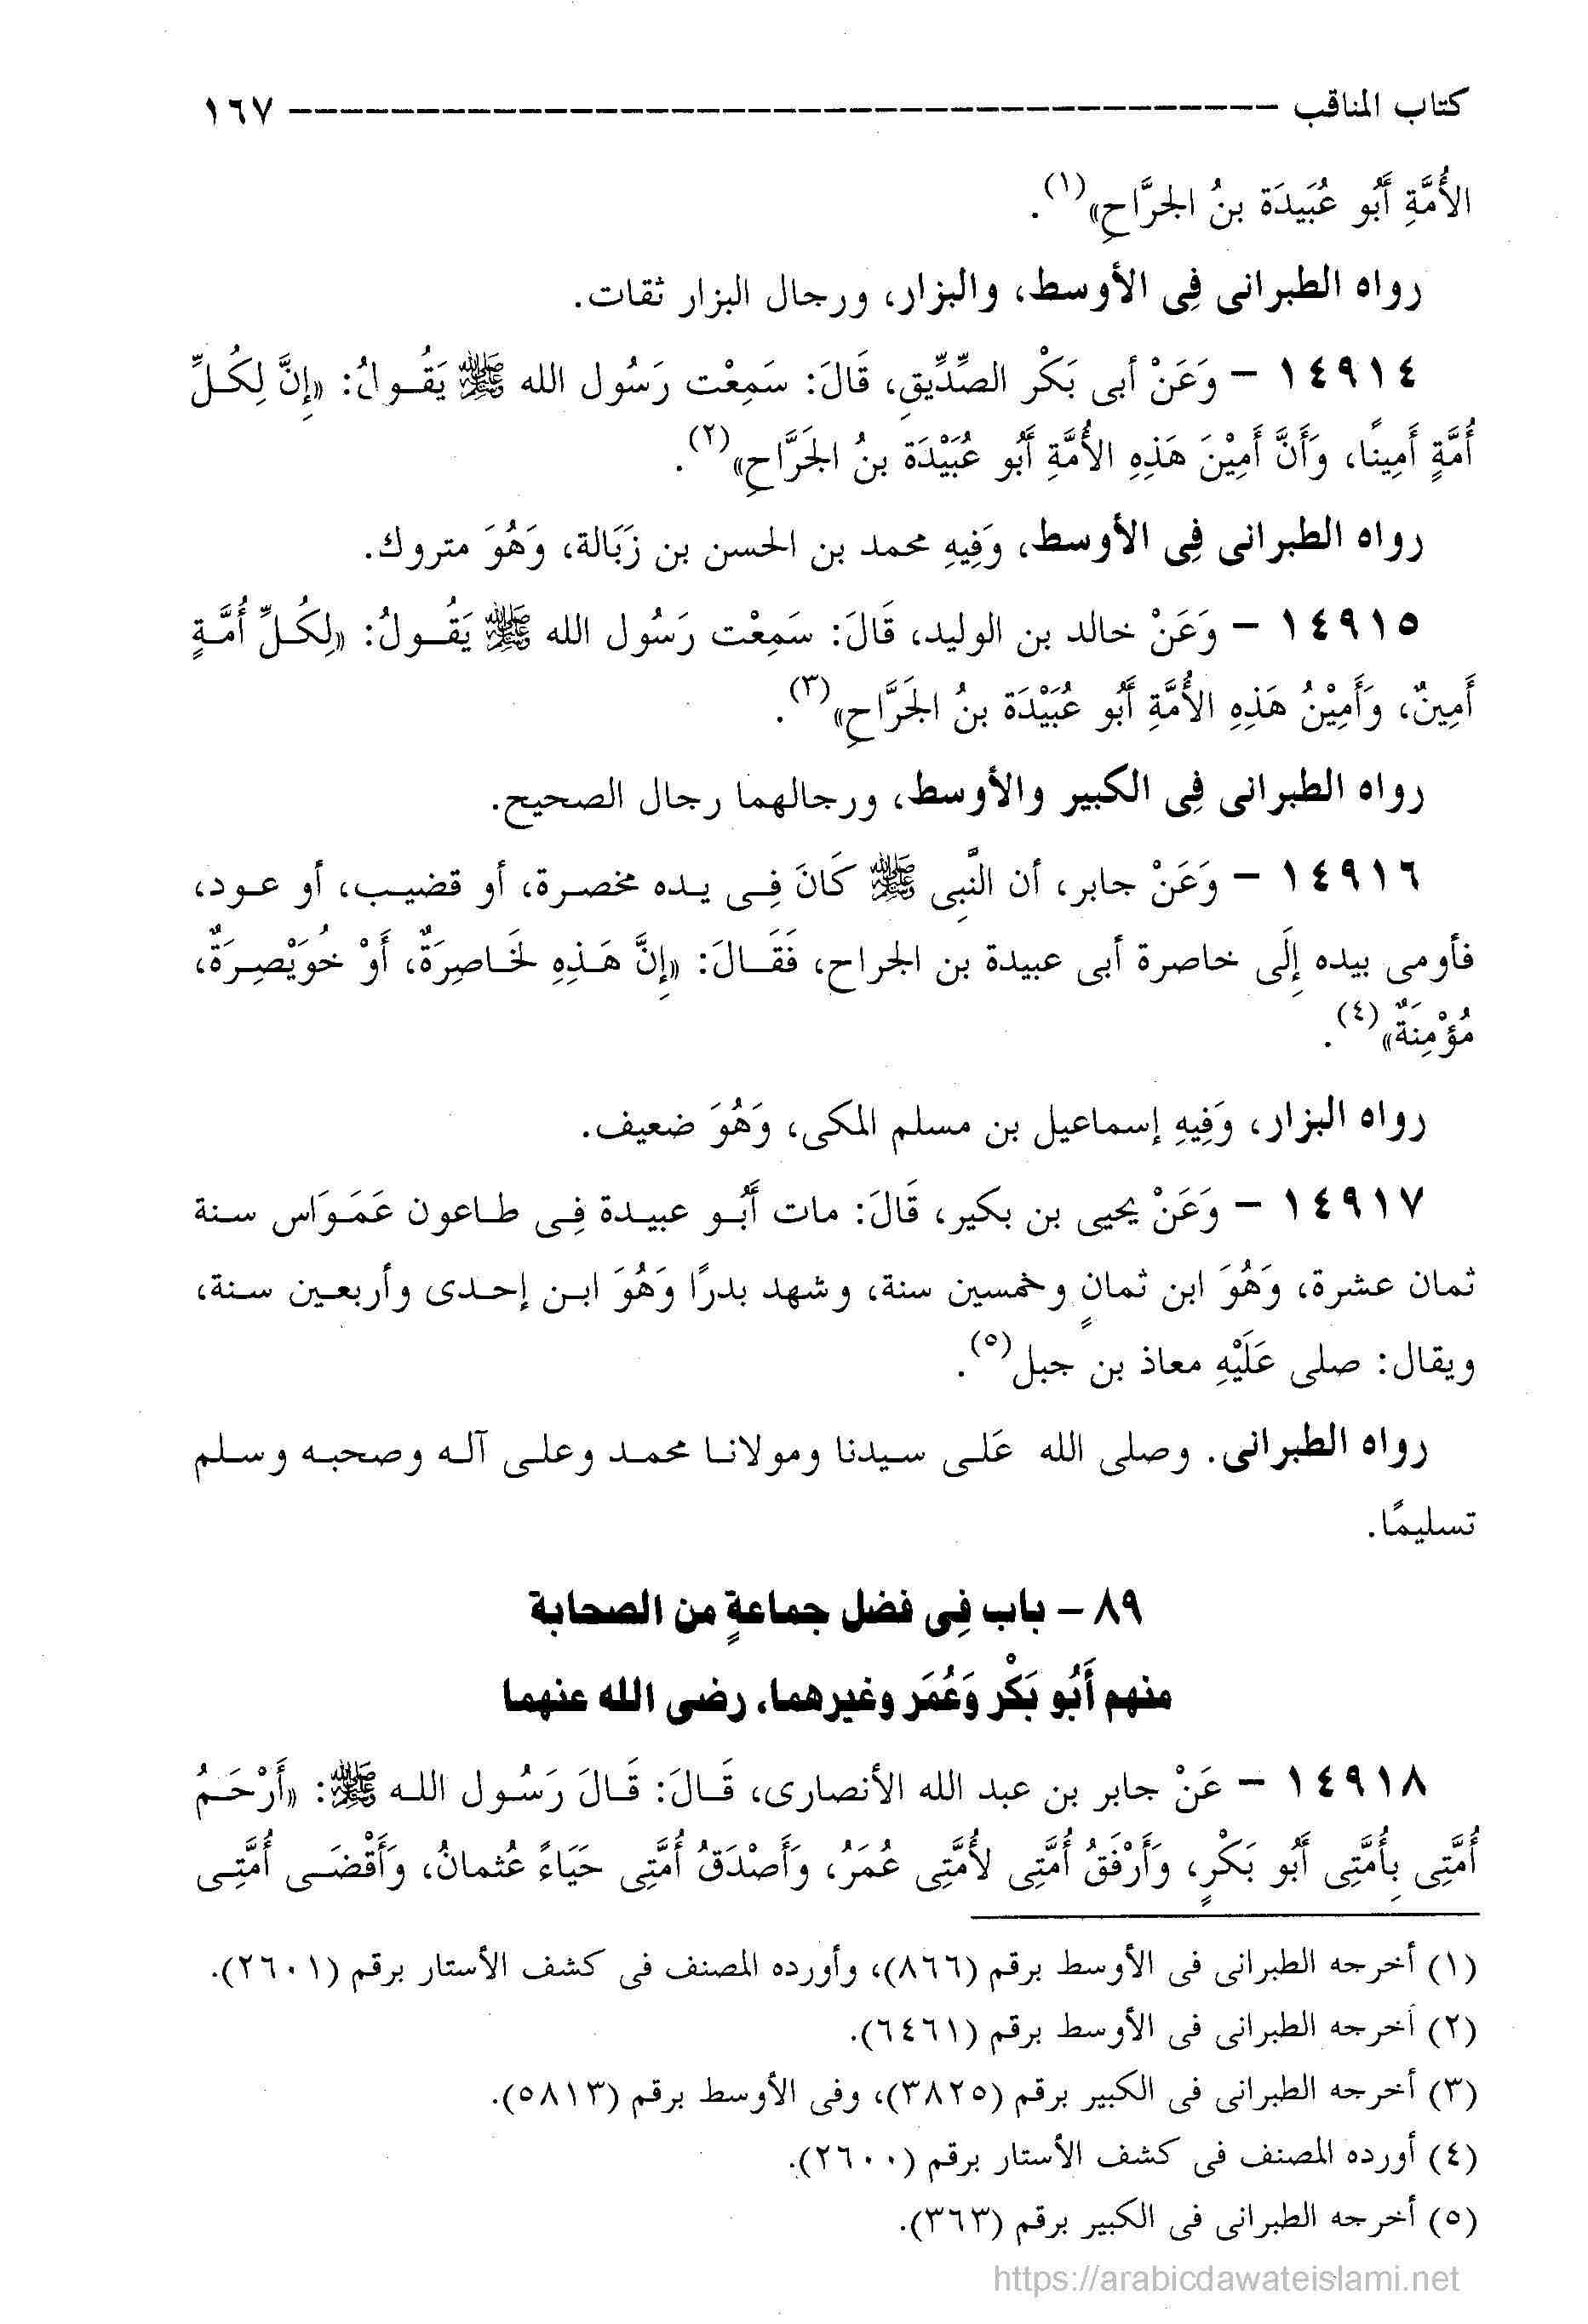 كتاب المناقب ـــــــــــــــــــــــــــــــــــــــــــــــــــــــــــــــــــــــــــــ ١٦٧
الأُمَّةِ أَبُو عُبَيدَة بنُ الجرَّاحِ»(١).
رواه الطبرانى فِى الأوسط، والبزار، ورجال البزار ثقات.
١٤٩١٤ – وَعَنْ أبى بَكْر الصِّدِّيقِ، قَالَ: سَمِعْت رَسُول الله ﷺ يَقُـولُ: «إِنَّ لِكُـلِّ
أُمَّةٍ أَمِينًا، وَأَنَّ أَمِيْنَ هَذِهِ الأُمَّةِ أَبُو عُبَيْدَة بنُ الجَرَّاحِ»(٢).
رواه الطبرانى فِى الأوسط، وَفِيهِ محمد بن الحسن بن زَبَالة، وَهُوَ متروك.
١٤٩١٥ – وَعَنْ خالد بن الوليد، قَالَ: سَمِعْت رَسُول الله ﷺ يَقُـولُ: «لِكُـلِّ أُمَّـةٍ
أَمِينٌ، وَأَمِيْنُ هَذِهِ الأُمَّةِ أَبُو عُبَيْدَة بنُ الجَرَّاحِ»(٣).
رواه الطبرانى فِى الكبير والأوسط، ورجالهما رجال الصحيح.
١٤٩١٦ – وَعَنْ جابر، أن النَّبِى ﷺ كَانَ فِـى يـده مخصـرة، أو قضيـب، أو عـود،
فأومى بيده إِلَى خاصرة أبى عبيدة بن الجراح، فَقَـالَ: «إِنَّ هَـذِهِ لَخَـاصِرَةٌ، أَوْ خُوَيْصِـرَةٌ،
مُؤْمِنَةٌ»(٤).
رواه البزار، وَفِيهِ إسماعيل بن مسلم المكى، وَهُوَ ضعيف.
١٤٩١٧ – وَعَنْ يحيى بن بكير، قَالَ: مات أَبُـو عبيـدة فِـى طـاعون عَمَـوَاس سـنة
ثمان عشرة، وَهُوَ ابن ثمانٍ وخمسين سنة، وشهد بدرًا وَهُوَ ابـن إحـدى وأربعـين سـنة،
ويقال: صلى عَلَيْهِ معاذ بن جبل(٥).
رواه الطبرانى. وصلى الله عَلـى سـيدنا ومولانـا محمـد وعلـى آلـه وصحبـه وسـلم
تسليمًا.
٨٩ – باب فِى فضل جماعةٍ من الصحابة
منهم أَبُو بَكْر وَعُمَر وغيرهما، رضى الله عنهما
١٤٩١٨ – عَنْ جابر بن عبد الله الأنصارى، قَـالَ: قَـالَ رَسُـول اللـه ﷺ: «أَرْحَـمُ
أُمَّتِى بِأُمَّتِى أَبُو بَكْرٍ، وَأَرْفَقُ أُمَّتِى لأُمَّتِى عُمَرُ، وَأَصْدَقُ أُمَّتِى حَيَاءً عُثمانُ، وَأَقْضَـى أُمَّتِـى
(١) أخرجه الطبرانى فى الأوسط برقم (٨٦٦)، وأورده المصنف فى كشف الأستار برقم (٢٦٠١).
(٢) أخرجه الطبرانى فى الأوسط برقم (٦٤٦١).
(٣) أخرجه الطبرانى فى الكبير برقم (٣٨٢٥)، وفى الأوسط برقم (٥٨١٣).
(٤) أورده المصنف فى كشف الأستار برقم (٢٦٠٠).
(٥) أخرجه الطبرانى فى الكبير برقم (٣٦٣).
https://arabicdawateislami.net